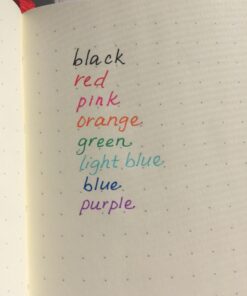 black
red
pink
orange
green
light blue
blue
purple